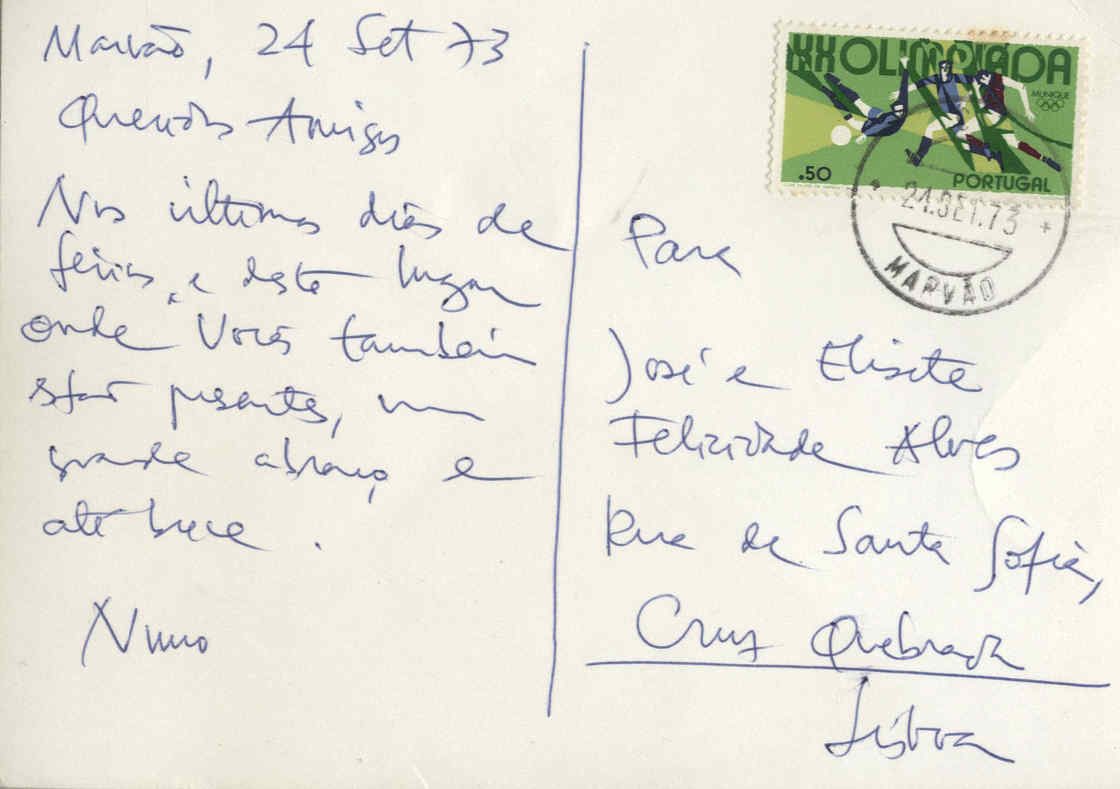 Marvão, 24 Set 73
Queridos Amigos
Nos últimos dias de
férias, e deste lugar
onde Vocês também
estão presentes, um
grande abraço e
até breve.
Nuno
XX OLIMPIADA
MUNIQUE
.50
PORTUGAL
24.SET.73
MARVÃO
Para
José e Elisete
Felicidade Alves
Rua de Santa Sofia,
Cruz Quebrada
Lisboa